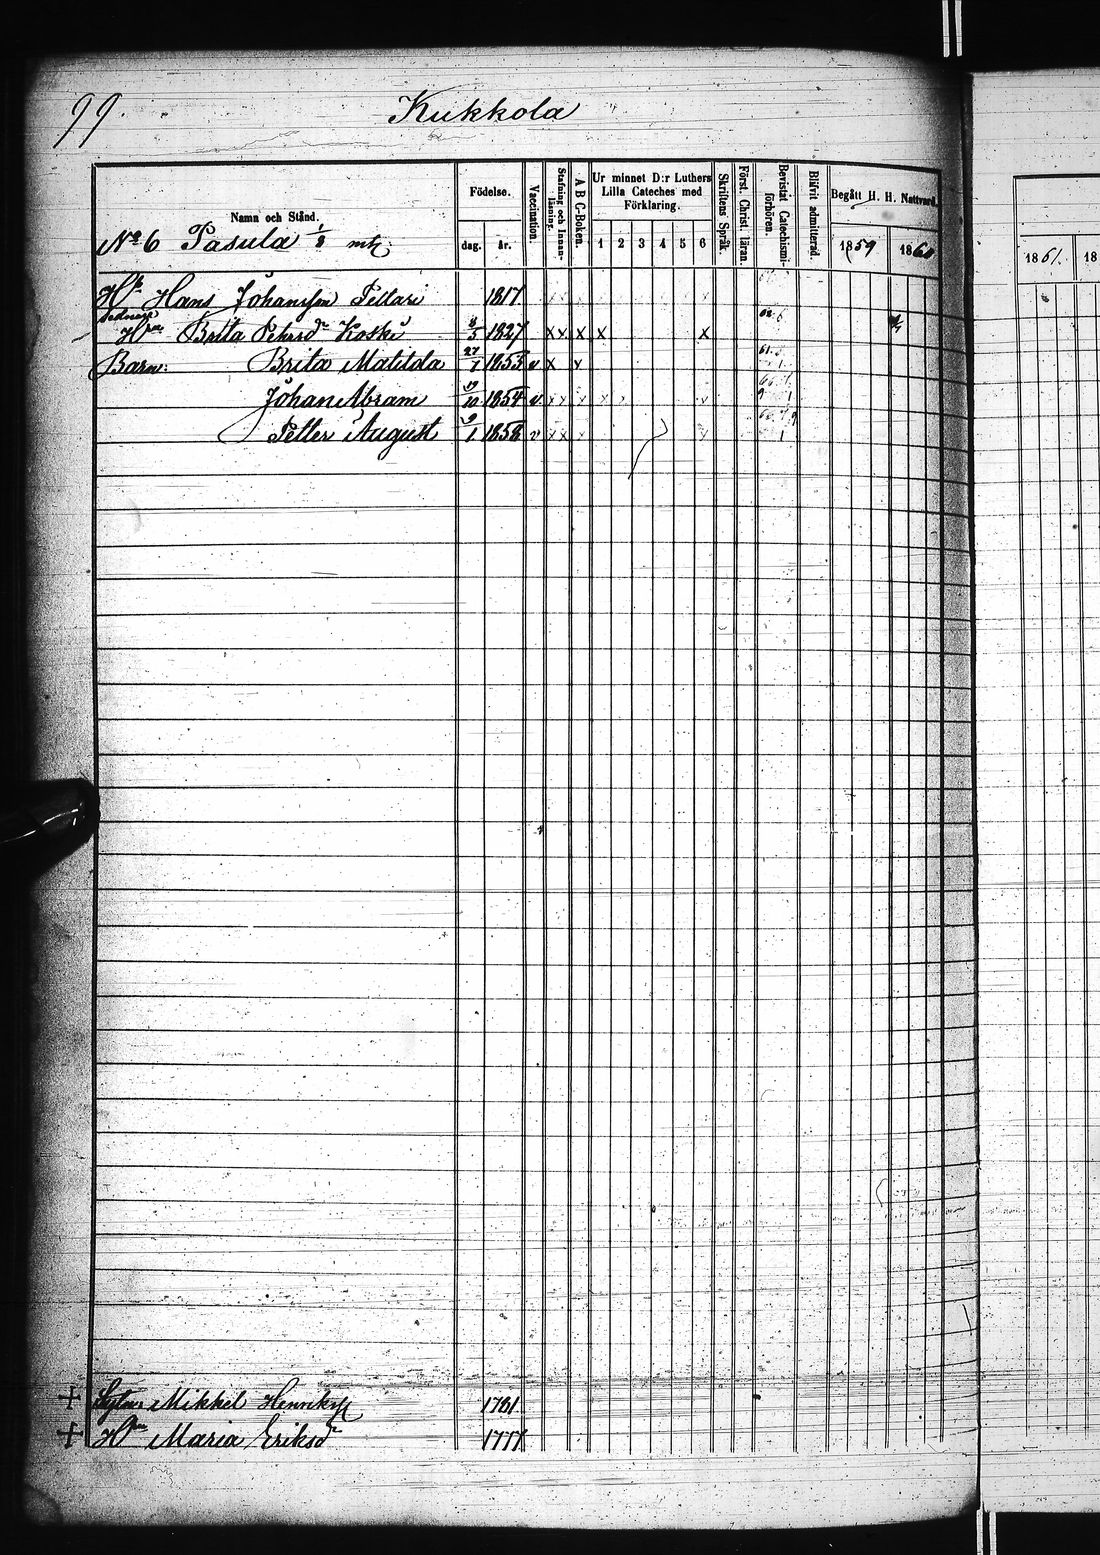 99.
Kukkola
Namn och Stånd.
Födelse.
dag. år.
Vaccination.
Stafning och Innan-läsning.
A B C-Boken.
Ur minnet D:r Luthers Lilla Cateches med Förklaring.
1 2 3 4 5 6
Skriftens Språk.
Först. Christ. läran.
Bevistat Catechismi-förhören.
Blifvit admitterad
Begått H. H. Nattvard.
1859 1860
1861. 18
No 6 Pasula 1/8 mtl
Hans Johansson Pettari 1817
Hn Brita Pehrsdr Koski 8/5 1827 x x x x x
Barn: Brita Matilda 27/7 1853 v x v
Johan Abram 19/10 1854 v
Petter August 9/1 1858 v
+ Mikkel Henriksn 1761
+ Hn Maria Eriksdr 1777